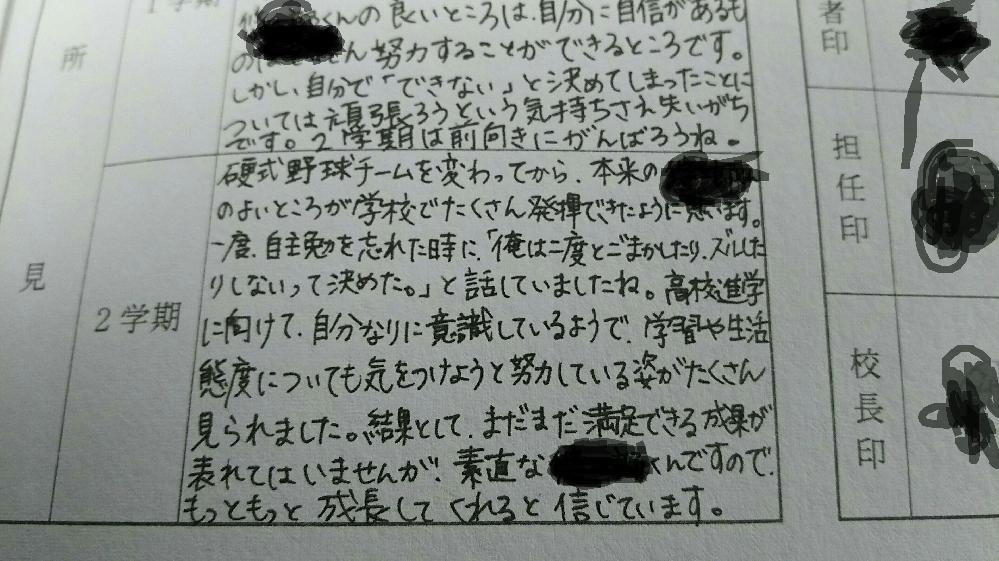 1学期
くんの良いところは、自分に自信があるも
の 努力することができるところです。
しかし、自分で「できない」と決めてしまったことに
ついては頑張ろうという気持ちさえ失いがち
です。2学期は前向きにがんばろうね。
所
見
2学期
硬式野球チームを変わってから、本来の
のよいところが学校でたくさん発揮できたように思います。
一度、自主勉を忘れた時に、「俺は二度とごまかしたり、ズルした
りしないって決めた。」と話していましたね。高校進学
に向けて、自分なりに意識しているようで、学習や生活
態度についても気をつけようと努力している姿がたくさん
見られました。結果として、まだまだ満足できる成果が
表れてはいませんが、素直な くんですので、
もっともっと成長してくれると信じています。
者印
担任印
校長印